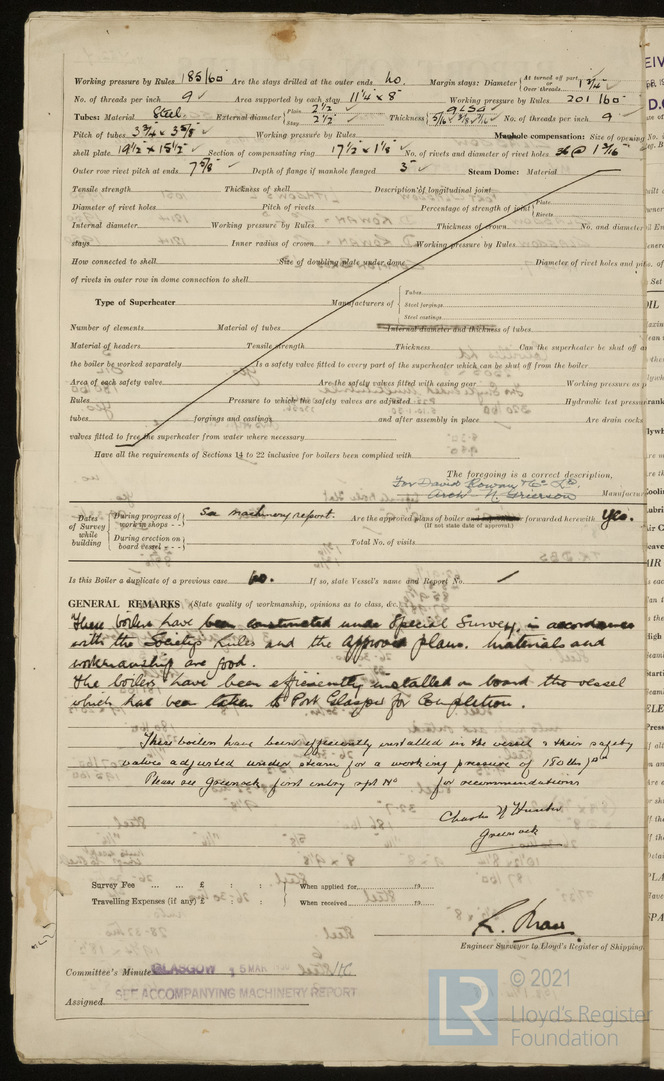 Working pressure by Rules 185 lbs Are the stays drilled at the outer ends No. Margin stays: Diameter { At turned off part, or Over threads 1 3/4"
No. of threads per inch 9 Area supported by each stay 11 1/4" x 8" Working pressure by Rules 201 lbs
Tubes: Material Steel External diameter { Plain 2 1/2" Stay 2 1/2" Thickness { 5/16" x 3/8" x 7/16" No. of threads per inch 9
Pitch of tubes 3 3/4" x 3 5/8" Working pressure by Rules Manhole compensation: Size of opening
shell plate 19 1/2" x 15 1/2" Section of compensating ring 17 1/2" x 1 1/8" No. of rivets and diameter of rivet holes 36 @ 1 3/16"
Outer row rivet pitch at ends 7 5/8" Depth of flange if manhole flanged 3" Steam Dome: Material
Tensile strength Thickness of shell Description of longitudinal joint
Diameter of rivet holes Pitch of rivets Percentage of strength of joint { Plate Rivets
Internal diameter Working pressure by Rules Thickness of crown No. and diameter
stays Inner radius of crown Working pressure by Rules
How connected to shell Size of doubling plate under dome Diameter of rivet holes and
of rivets in outer row in dome connection to shell
Type of Superheater Manufacturers of { Tubes Steel forgings Steel castings
Number of elements Material of tubes Internal diameter and thickness of tubes
Material of headers Tensile strength Thickness Can the superheater be shut off
the boiler be worked separately Is a safety valve fitted to every part of the superheater which can be shut off from the boiler
Area of each safety valve Are the safety valves fitted with easing gear Working pressure as
Rules Pressure to which the safety valves are adjusted Hydraulic test pressure
tubes forgings and castings and after assembly in place Are drain cocks
valves fitted to free the superheater from water where necessary
Have all the requirements of Sections 14 to 22 inclusive for boilers been complied with
The foregoing is a correct description,
For David Rowan & Co. Ld.
Arch. N. Grierson Manufactur
Dates of Survey while building { During progress of work in shops - - } See machinery report. Are the approved plans of boiler and forwarded herewith Yes.
(If not state date of approval)
{ During erection on board vessel - - - } Total No. of visits
Is this Boiler a duplicate of a previous case No. If so, state Vessel's name and Report No.
GENERAL REMARKS (State quality of workmanship, opinions as to class, &c.
These boilers have been constructed under Special Survey, in accordance
with the Society's Rules and the approved plans. Materials and
workmanship are good.
The boilers have been efficiently installed on board the vessel
which has been taken to Port Glasgow for completion.
These boilers have been efficiently installed in the vessel & their safety
valves adjusted under steam for a working pressure of 180 lbs
Please see Greenock first entry rpt No for recommendations
Charles N Hunter
Greenock
Survey Fee ... ... £ : : When applied for, 19
Travelling Expenses (if any) £ : : When received, 19
Engineer Surveyor to Lloyd's Register of Shipping.
Committee's Minute GLASGOW 5 MAR
SEE ACCOMPANYING MACHINERY REPORT
Assigned
© 2021
LR Lloyd's Register
Foundation